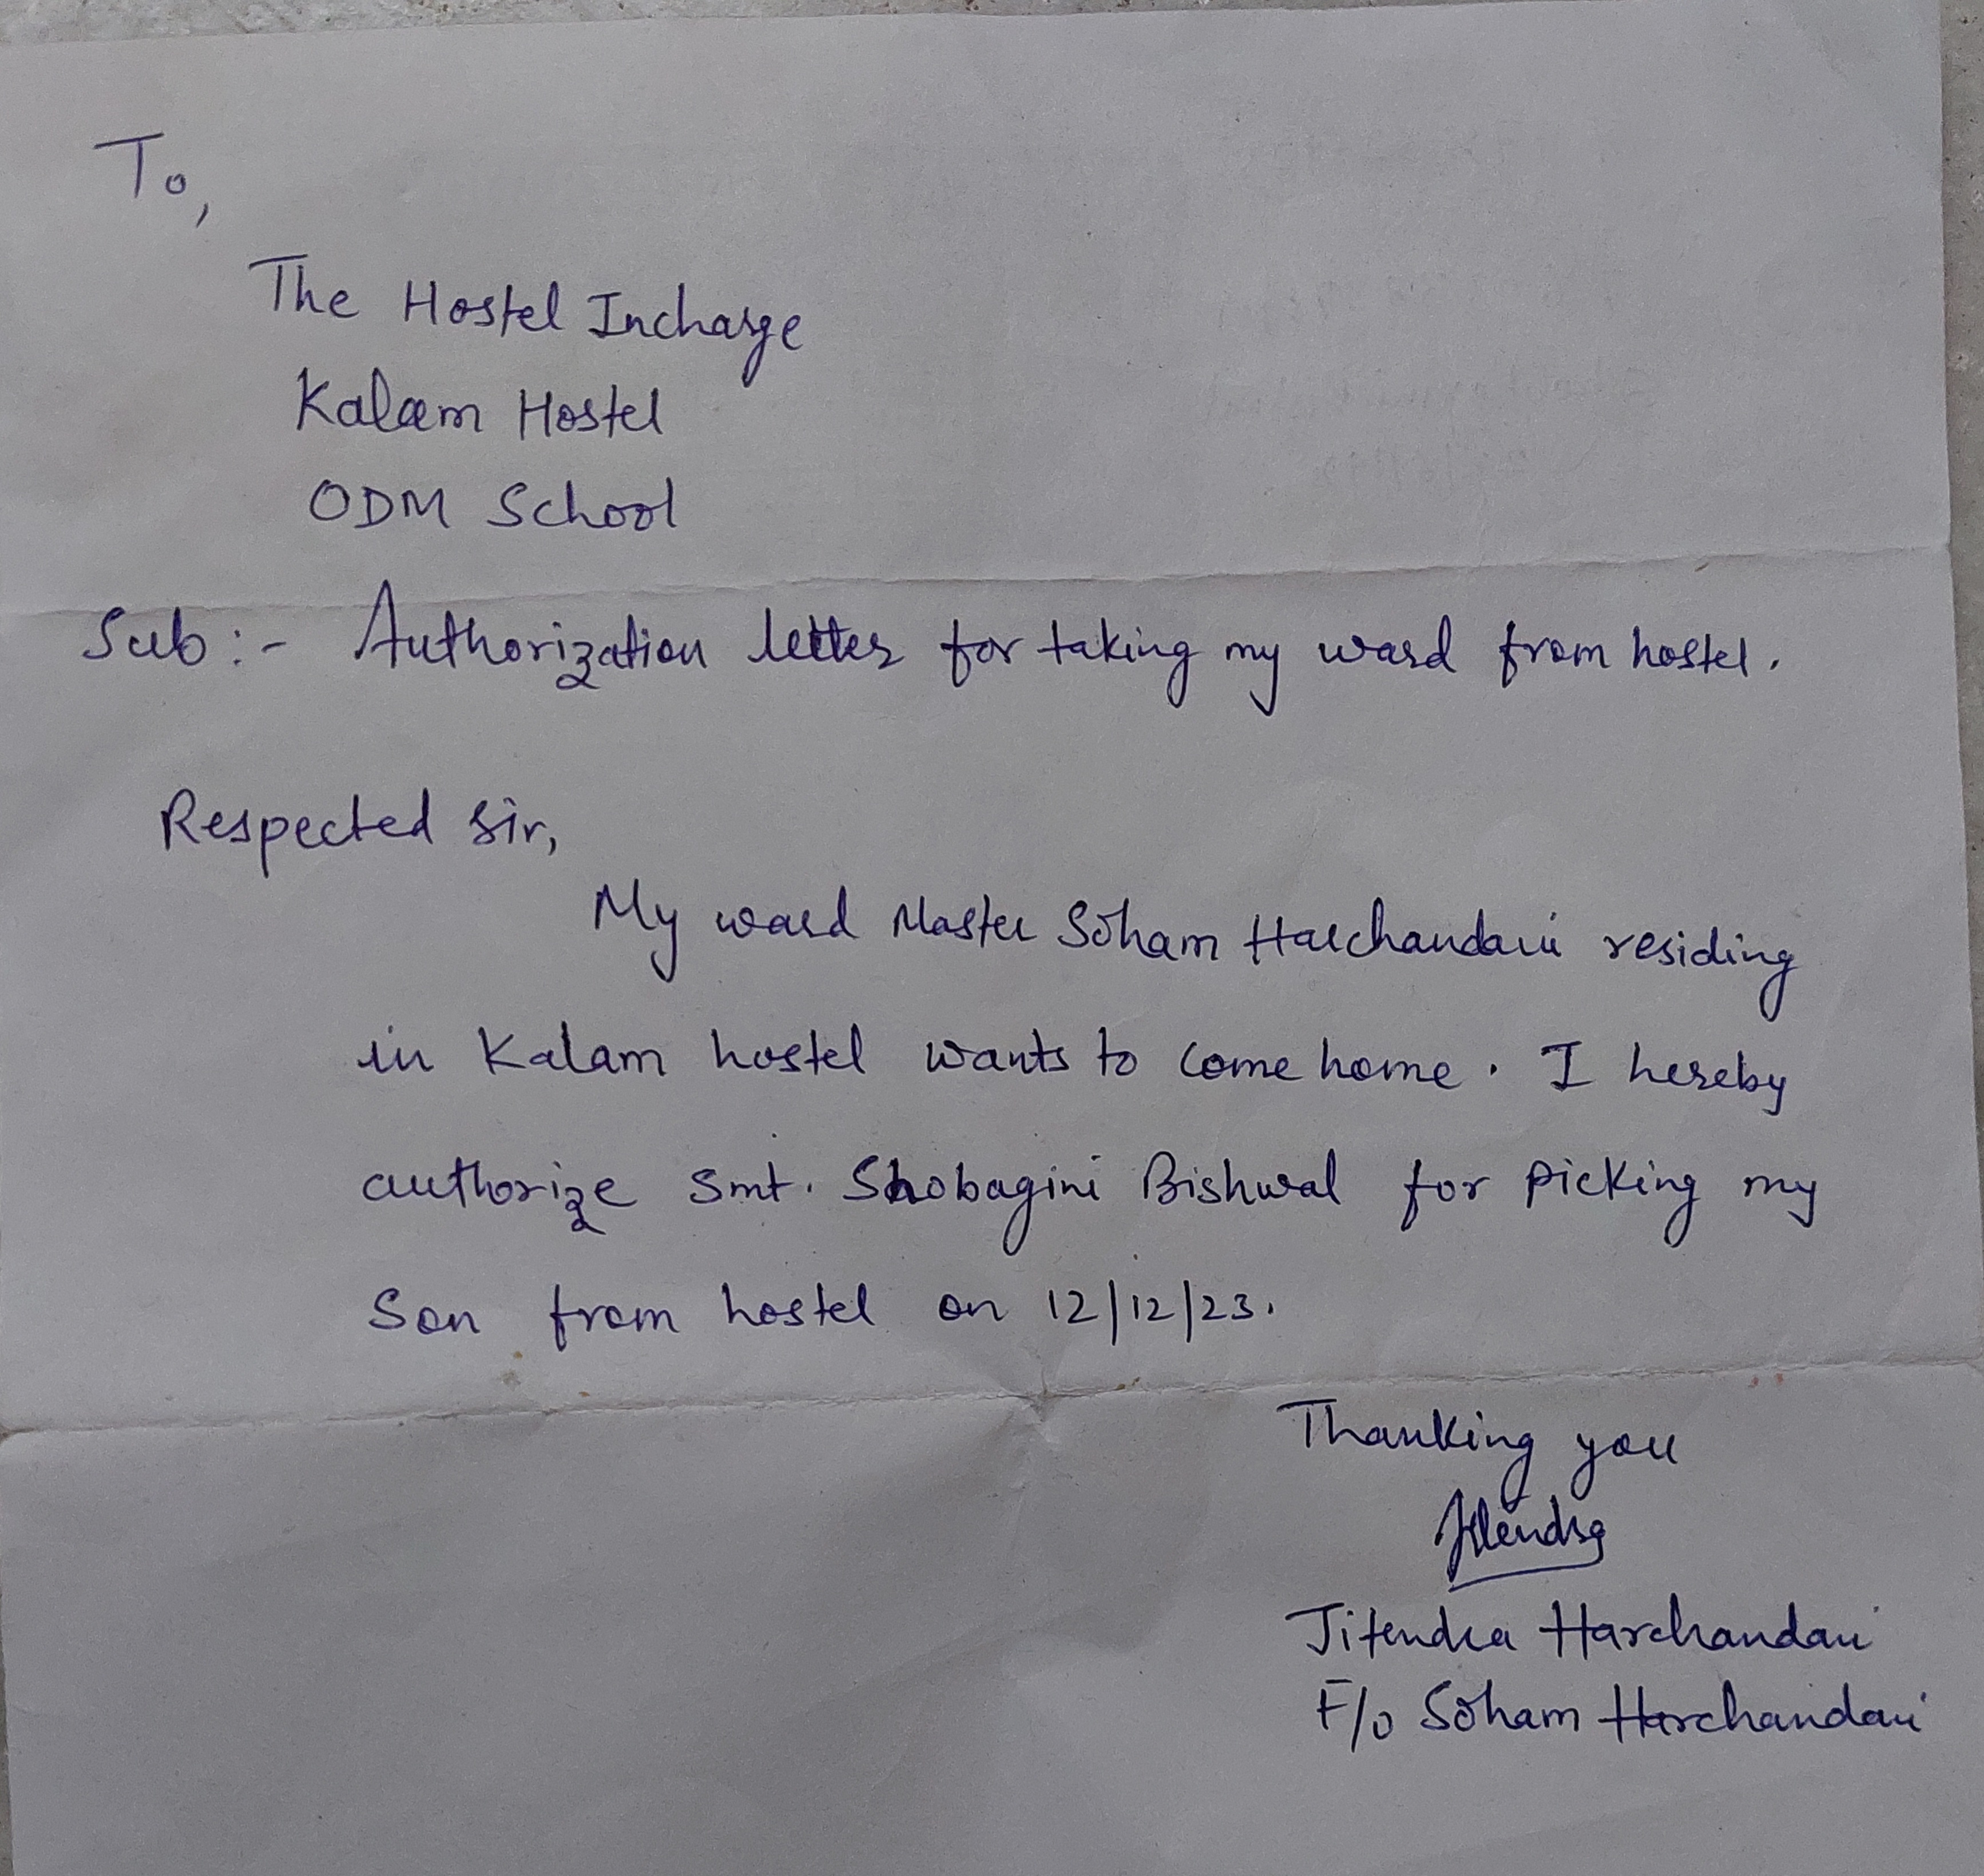 To,
The Hostel Incharge
Kalam Hostel
ODM School
Sub:- Authorization letter for taking my ward from hostel.
Respected Sir,
My ward Master Soham Harchandani residing
in Kalam hostel wants to come home. I hereby
authorize Smt. Shobagini Bishwal for picking my
Son from hostel on 12/12/23.
Thanking you
Jitendra
Jitendra Harchandani
F/o Soham Harchandani